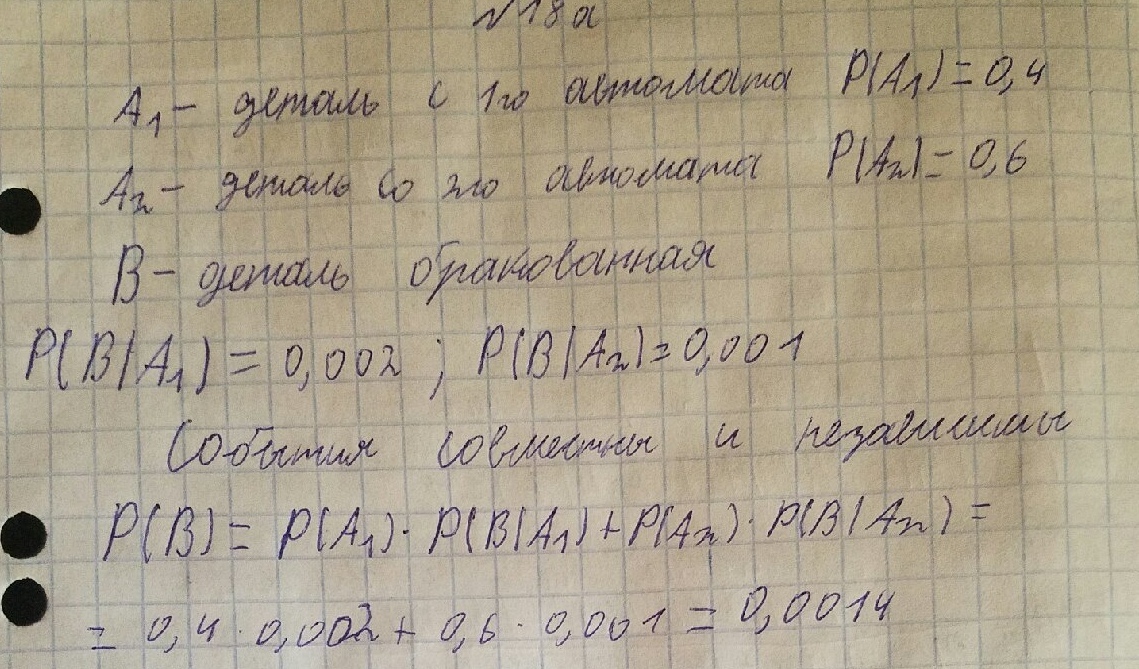 №18а
A₁ – деталь с 1го автомата P(A₁) = 0,4
A₂ – деталь со 2го автомата P(A₂) = 0,6
B – деталь бракованная
P(B|A₁) = 0,002 ; P(B|A₂) = 0,001
События совместны и независимы
P(B) = P(A₁) · P(B|A₁) + P(A₂) · P(B|A₂) =
= 0,4 · 0,002 + 0,6 · 0,001 = 0,0014